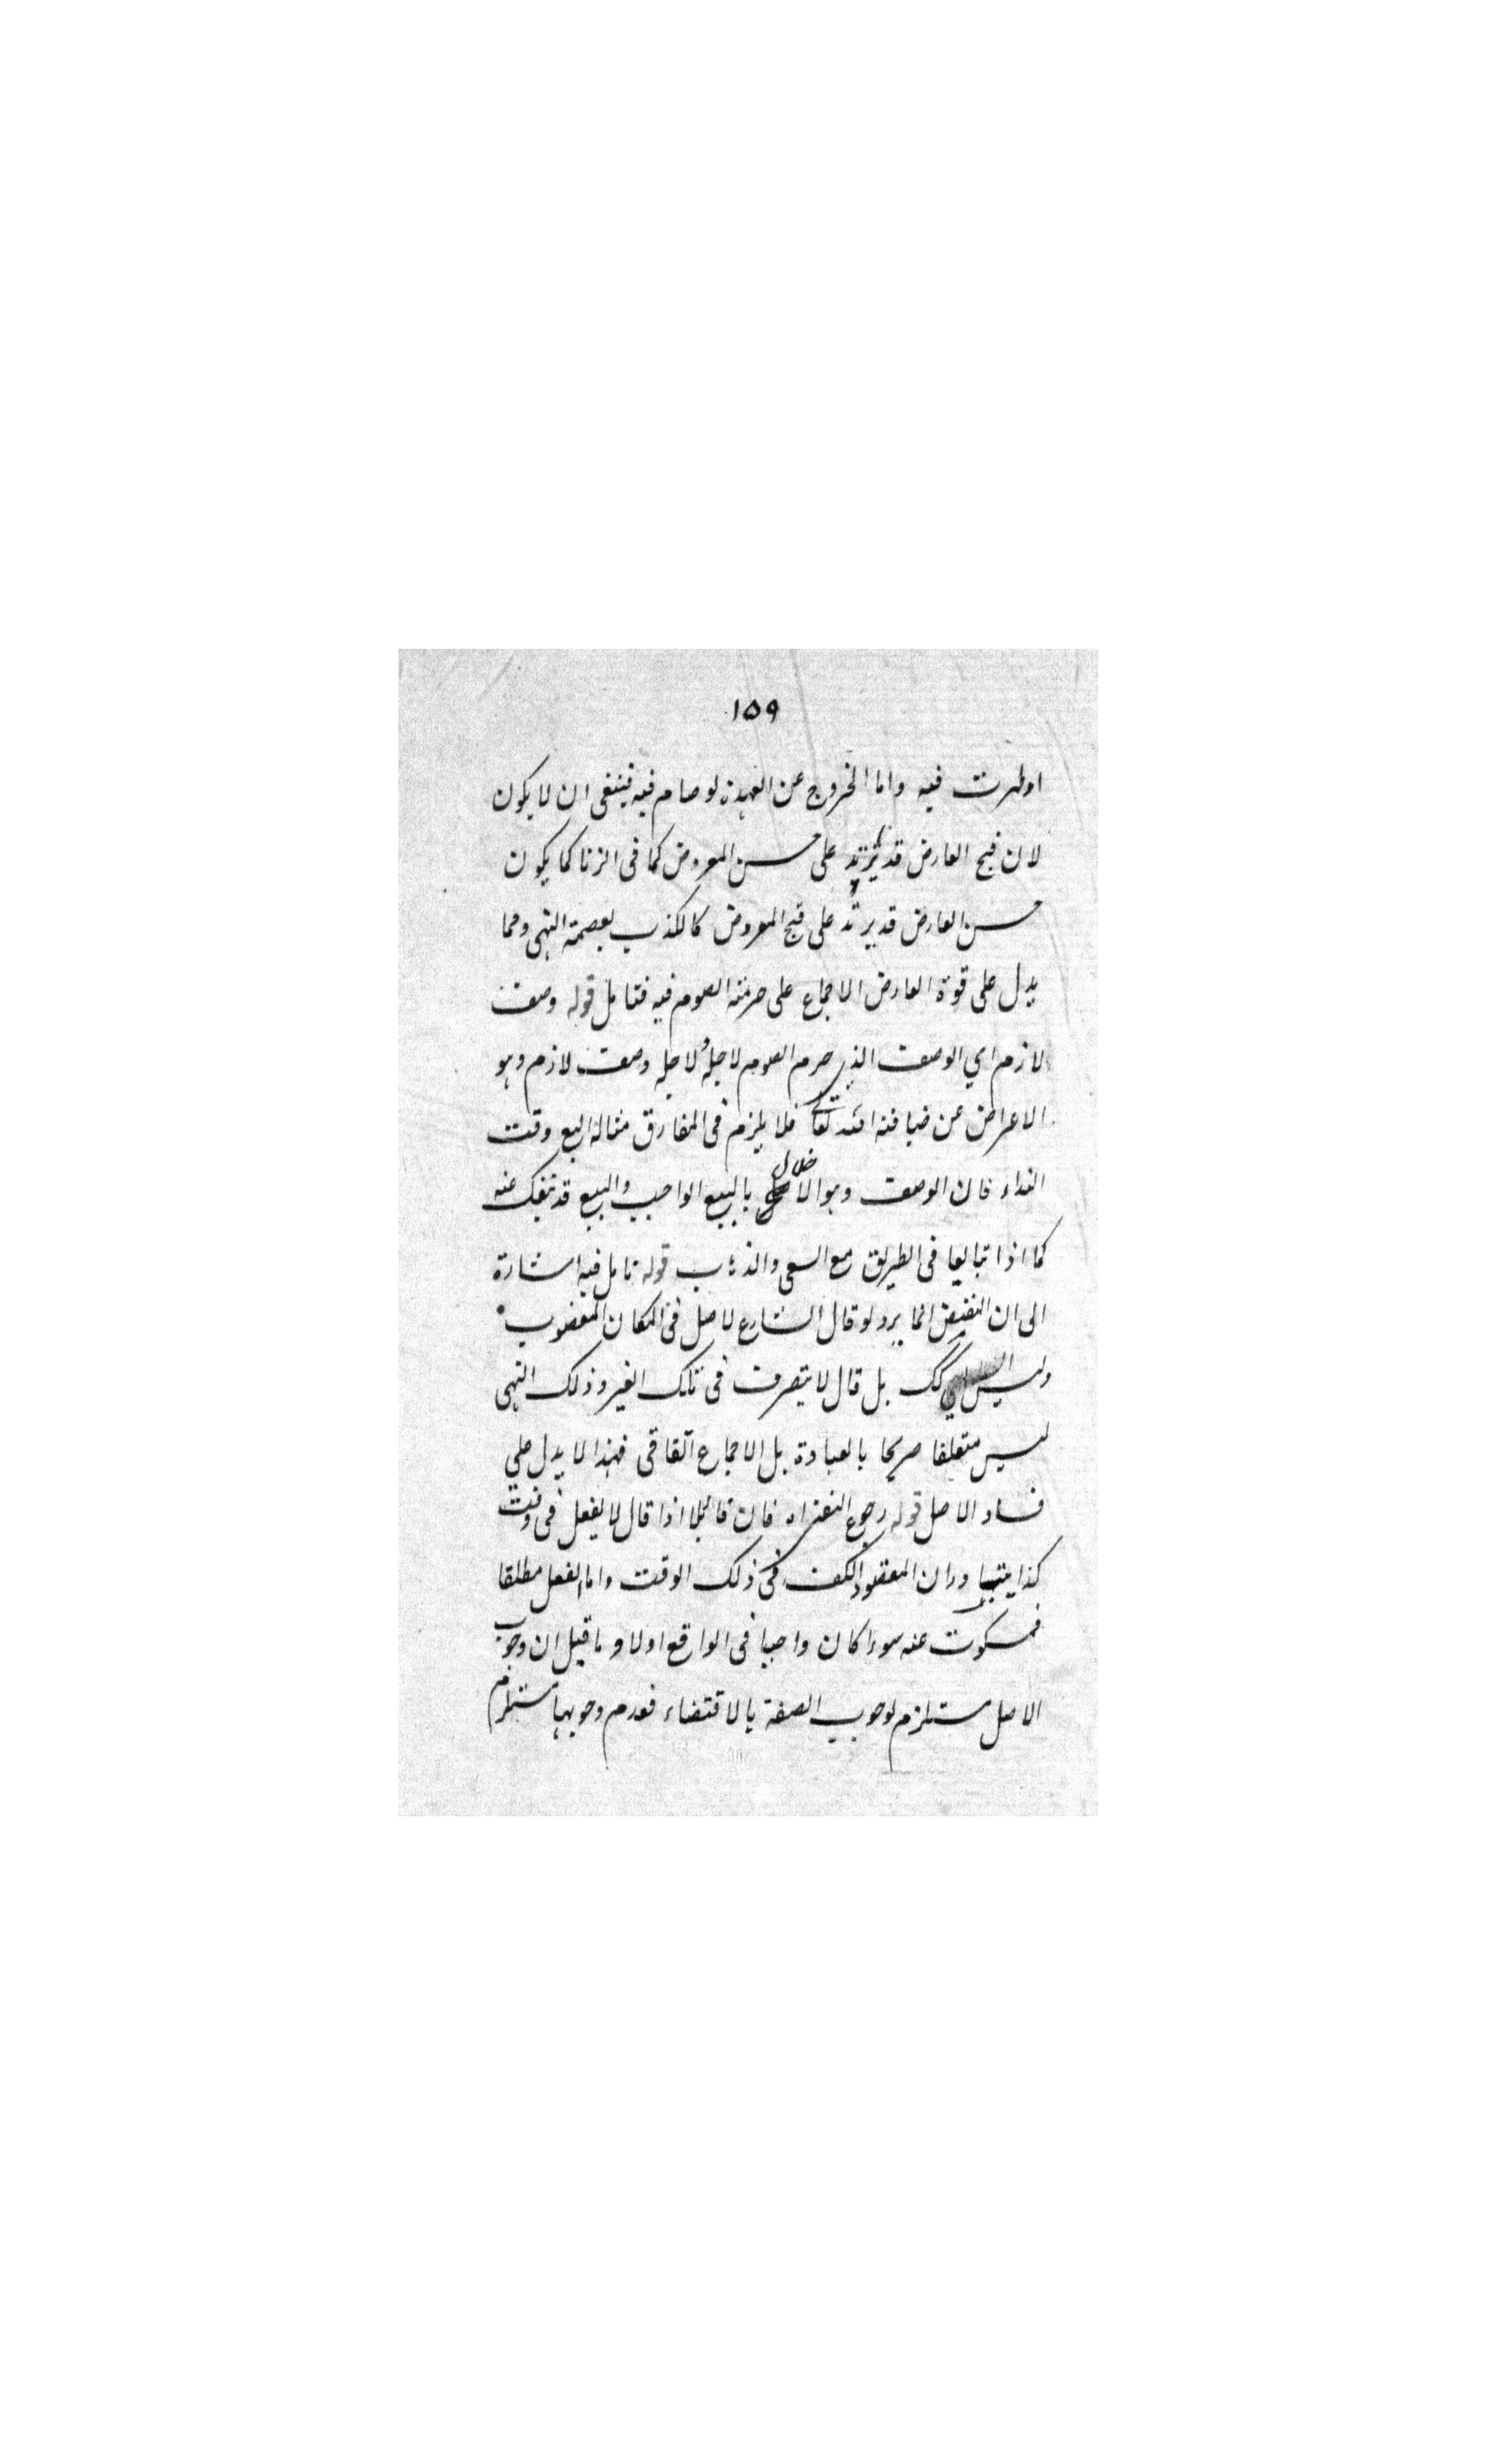 ١٥٩
او طهرت فيه واما الخروج عن العهدة لو صام فيه فينبغى ان لا يكون
لان قبح العارض قد يزيد على حسن المعروض كما فى الزنا كما يكون
حسن العارض قد يزيد على قبح المعروض كالكذب لعصمة النبى ومما
يدل على قوة العارض الاجماع على حرمة الصوم فيه فتامل قوله وصف
لازم اي الوصف الذى حرم الصوم لاجله وصف لازم وهو
الاعراض عن ضيافة الله تعالى فلا يلزم فى المفارق مثاله البيع وقت
النداء فان الوصف وهو الاخلال بالسعى الواجب والبيع قد ينفك عنه
كما اذا تبايعا فى الطريق مع السعى والذهاب قوله تامل فيه اشارة
الى ان النقيض انما يرد لو قال الشارع لا صل فى المكان المغضوب
وليس كك بل قال لا يتصرف فى ملك الغير وذلك النهى
ليس متعلقا صريحا بالعبادة بل الاجماع اتفاقى فهذا لا يدل على
فساد الاصل قوله رجوع النفى اه فان قائلا اذا قال لا يفعل فى وقت
كذا يتبادر ان المقصود الكف فى ذلك الوقت واما الفعل مطلقا
فمسكوت عنه سواء كان واجبا فى الواقع اولا و ما قيل ان وجوب
الاصل مستلزم لوجوب الصفة بالاقتضاء فعدم وجوبها مستلزم